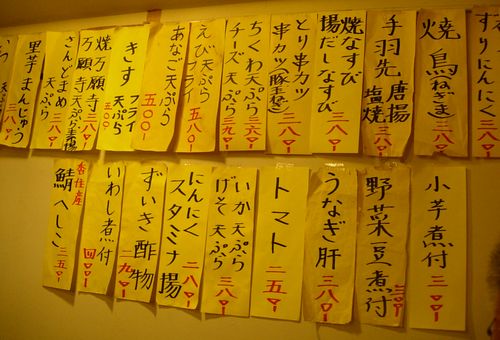 すりにんにく
焼鳥(ねぎま)
二八〇ー
手羽先
唐揚
塩焼
三八〇ー
焼なすび
揚だしなすび
三八〇ー
とり串カツ
串カツ(豚玉ねぎ)
二八〇ー
ちくわ天ぷら
二六〇ー
チーズ天ぷら
三九〇ー
えび天ぷら
フライ
五八〇ー
あなご天ぷら
五〇〇ー
きす
フライ
天ぷら
五〇〇ー
焼万願寺
三八〇ー
万願寺天ぷら
素揚
さんどまめ
天ぷら
三八〇ー
里芋まんじゅう
三八〇ー
小芋煮付
三〇〇ー
野菜豆煮付
三〇〇ー
うなぎ肝
三八〇ー
トマト
二五〇ー
いか天ぷら
げそ天ぷら
三八〇ー
にんにく
スタミナ揚
二八〇ー
ずいき酢物
二九〇ー
いわし煮付
四〇〇ー
香住産
鯖へしこ
二五〇ー